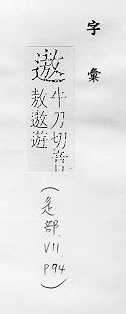 字彙
遨
牛刀切音
敖遨遊
(辵部.VII.
P.94)